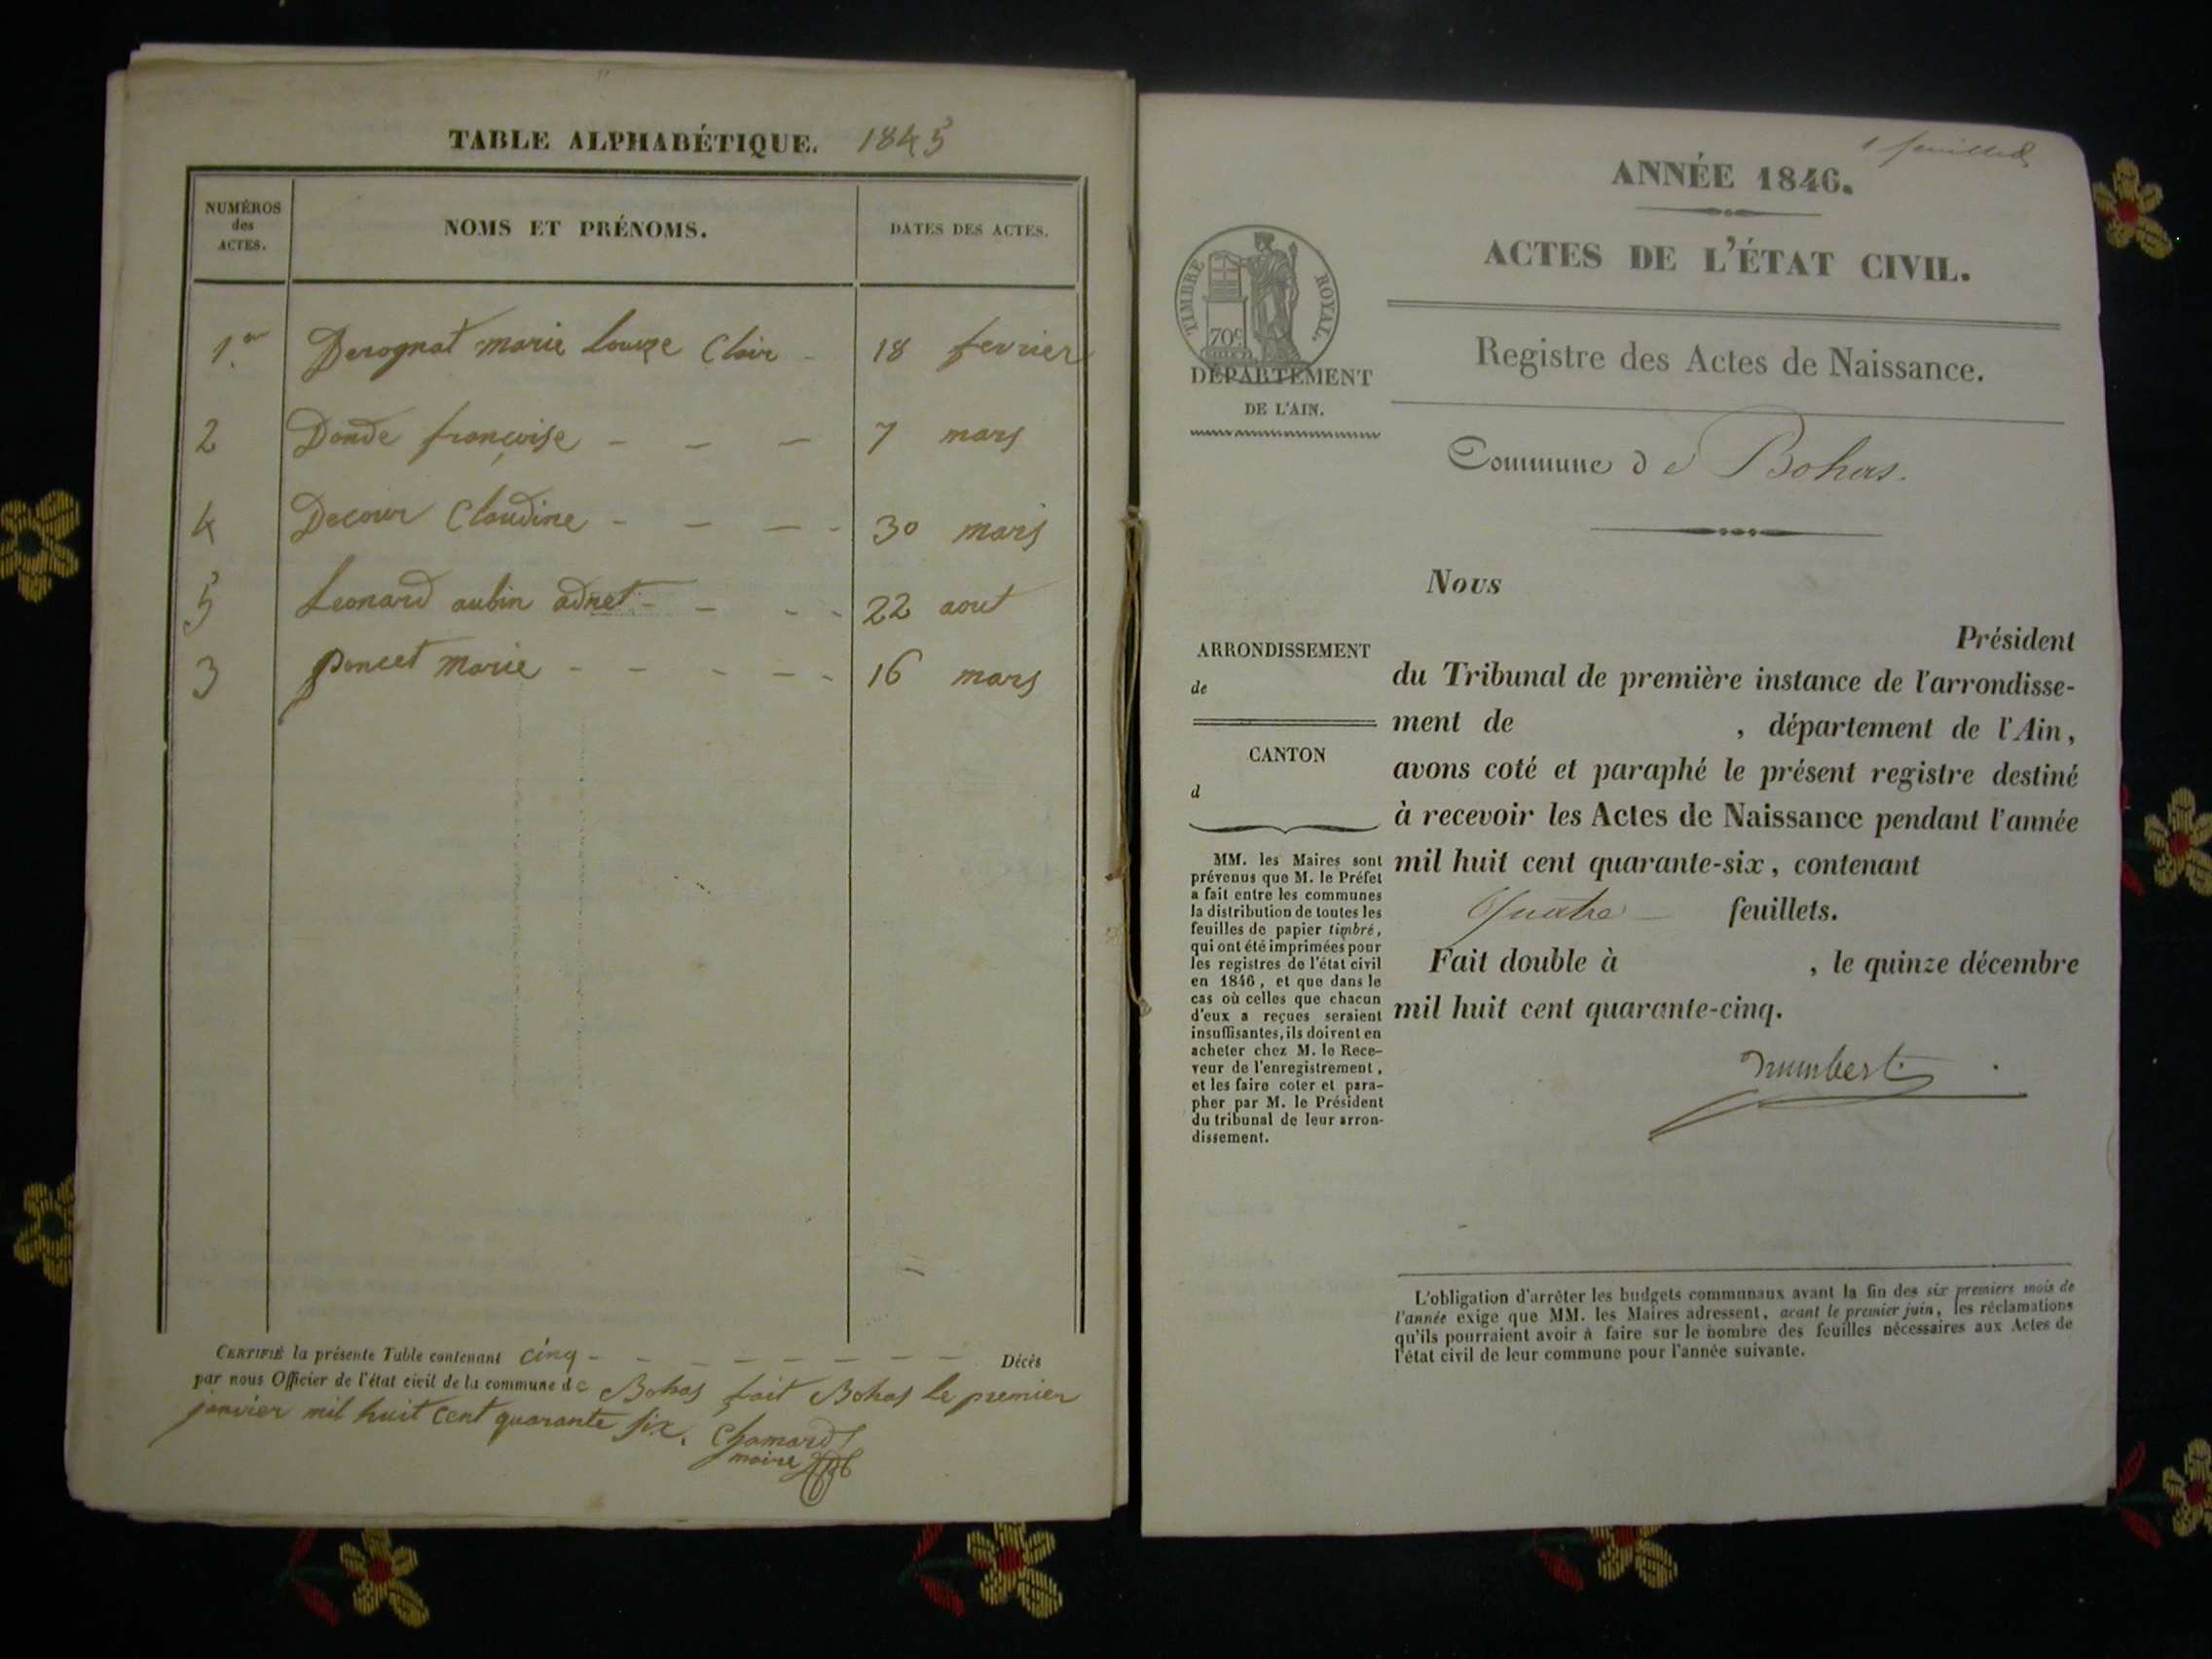 TABLE ALPHABÉTIQUE. 1845
NUMÉROS
des
ACTES.
NOMS ET PRÉNOMS.
DATES DES ACTES.
1.er Derognat marie Louize Clair - 18 fevrier
2 Donde françoise - - - 7 mars
4 Decour Claudine - - - - 30 mars
5 Leonard aubin adret - - - - 22 aout
3 poncet marie - - - - - 16 mars
CERTIFIÉ la présente Table contenant cinq - - - - - - - - Décès
par nous Officier de l'état civil de la commune de Bohas fait Bohas le premier
janvier mil huit cent quarante six. Chamard
maire
1 feuillet
ANNÉE 1846.
ACTES DE L'ÉTAT CIVIL.
TIMBRE ROYAL.
70c
DÉPARTEMENT
DE L'AIN.
Registre des Actes de Naissance.
Commune de Bohas.
Nous
Président
du Tribunal de première instance de l'arrondisse-
ment de , département de l'Ain,
avons coté et paraphé le présent registre destiné
à recevoir les Actes de Naissance pendant l'année
mil huit cent quarante-six, contenant
Quatre feuillets.
Fait double à , le quinze décembre
mil huit cent quarante-cinq.
humbert
ARRONDISSEMENT
de
CANTON
d
MM. les Maires sont
prévenus que M. le Préfet
a fait entre les communes
la distribution de toutes les
feuilles de papier timbré,
qui ont été imprimées pour
les registres de l'état civil
en 1846, et que dans le
cas où celles que chacun
d'eux a reçues seraient
insuffisantes, ils doivent en
acheter chez M. le Rece-
veur de l'enregistrement,
et les faire coter et para-
pher par M. le Président
du tribunal de leur arron-
dissement.
L'obligation d'arrêter les budgets communaux avant la fin des six premiers mois de
l'année exige que MM. les Maires adressent, avant le premier juin, les réclamations
qu'ils pourraient avoir à faire sur le nombre des feuilles nécessaires aux Actes de
l'état civil de leur commune pour l'année suivante.